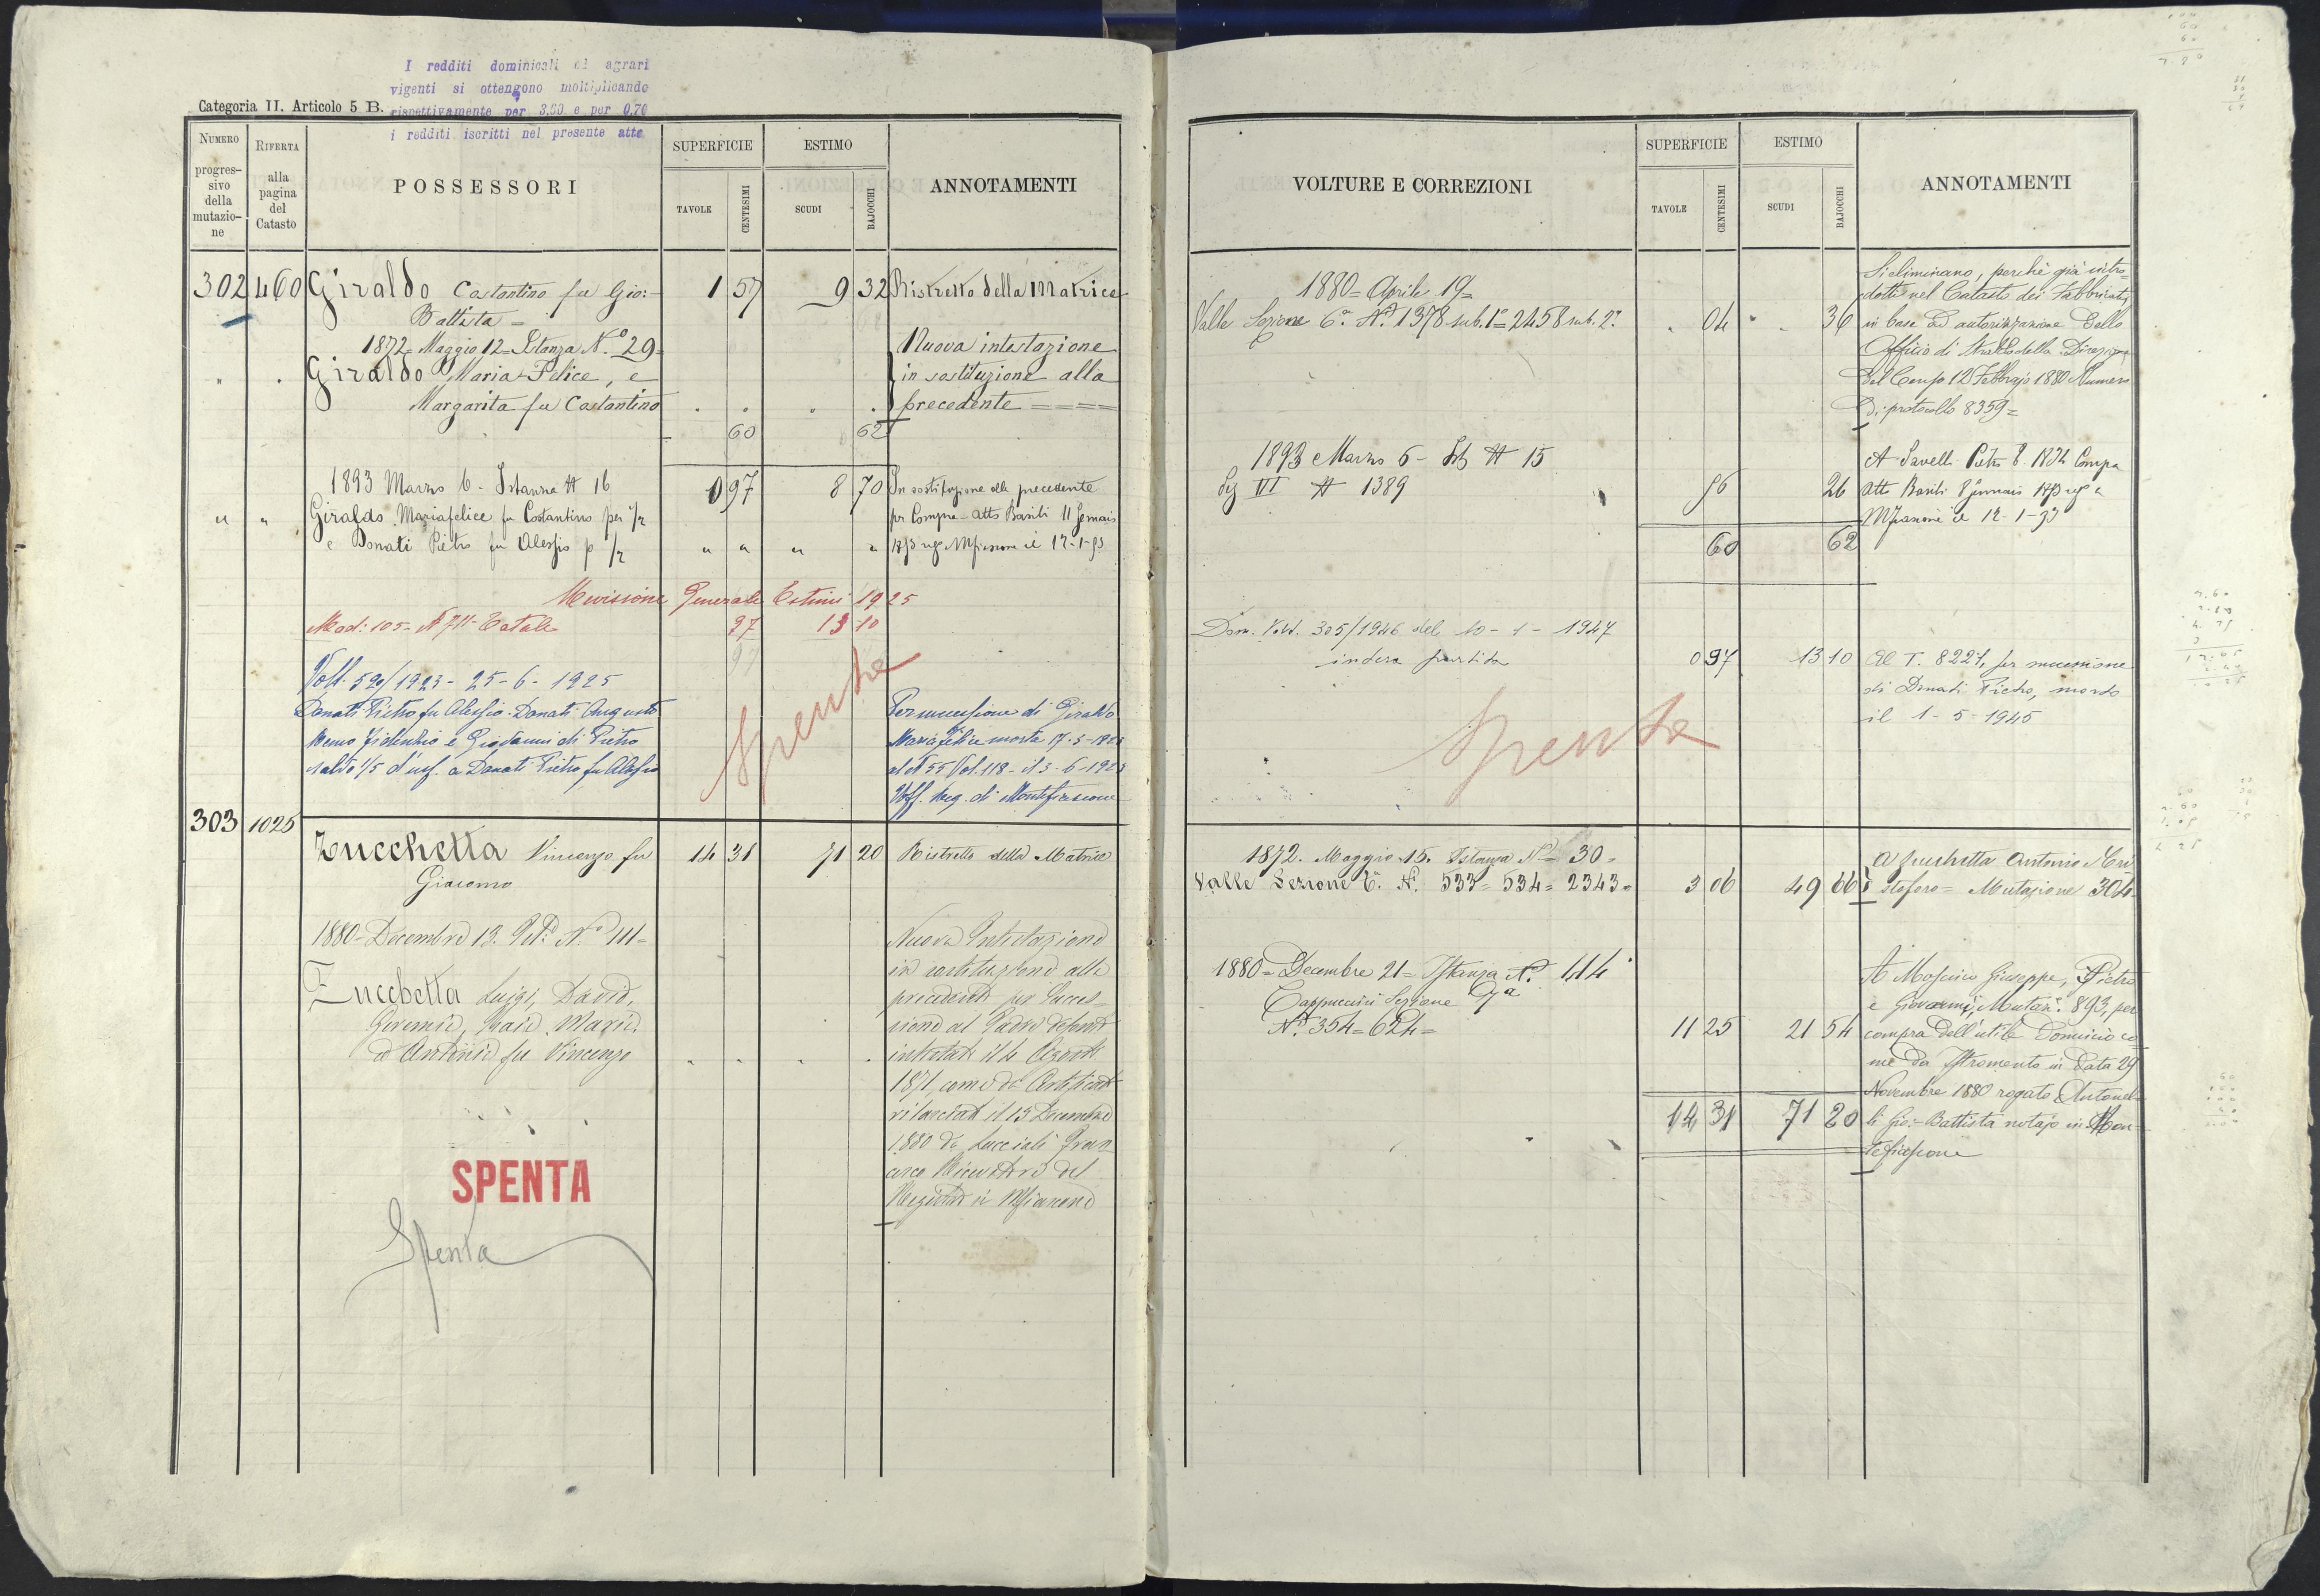 I redditi dominicali ed agrari
vigenti si ottengono moltiplicando
rispettivamente per 3.60 e per 0,70
i redditi iscritti nel presente atto
Categoria II. Articolo 5 B.
NUMERO progressivo della mutazione
RIFERTA alla pagina del Catasto
POSSESSORI
SUPERFICIE
TAVOLE
CENTESIMI
ESTIMO
SCUDI
BAJOCCHI
ANNOTAMENTI
302 460 Giraldo Costantino fu Gio: 1 57 9 32 Ristretto della Matrice
Battista =
1872 = Maggio 12 = Istanza N.º 29 = Nuova intestazione
" . Giraldo Maria Felice, e in sostituzione alla
Margarita fu Costantino . . . . precedente ====
60 62
1893 Marzo 6 - Istanza N 16 0 97 8 70 In sostituzione alla precedente
" " Giraldo Mariafelice fu Costantino per 1/2 per Compra - Atto Basili 11
e Donati Pietro fu Alessio p 1/2 " " " "
Revisione Generale Estimi 1925
Mod: 105 = Totale 97 13 10
97
Volt. 1923 - 25 - 6 - 1925
Donati Pietro fu Alessio - Donati Augusto Per successione di Giraldo
e Giovanni di Pietro Mariafelice morta
1/5 d'usf. a Donati Pietro fu Alessio al N 55 Vol. 118 -
Uff. Reg. di Montefiascone
Spenta
303 1025
Zucchetta Vincenzo fu 14 31 71 20 Ristretto della Matrice
Giacomo
1880 - Decembre 13. N.º 111 = Nuova Intestazione
in sostituzione alla
Zucchetta Luigi, David, precedente per Succes-
sione al Padre
ed Antonio fu Vincenzo . . . . intestata il 4 Agosto
1871, come da Certificato
rilasciato il 13 Decembre
1880 da Lucciali Fran-
cesco Ricevitore del
SPENTA Registro in Mfiascone
Spenta
VOLTURE E CORREZIONI
SUPERFICIE
TAVOLE
CENTESIMI
ESTIMO
SCUDI
BAJOCCHI
ANNOTAMENTI
Si eliminano, perchè già intro-
1880 = Aprile 19 = dotti nel Catasto dei Fabbricati,
Valle Sezione 6.ª N.º 1378 sub. 1º = 2458 sub. 2º . 04 . 36 in base ad autorizzazione dello
Officio di Stralcio della Direzione
del Censo 12 Febbrajo 1880 Numero
di protocollo 8359 =
1893 Marzo 6 - Ist N 15 A Savelli Pietro
Sez VI N 1389 56 26 atto Basili
Mfiascone il 12-1-93
60 62
Dom. Volt. 305/1946 del 10 - 1 - 1947
intera partita 0 97 13 10 Al T. 8221, per successione
di Donati Pietro, morto
il 1 - 5 - 1945
Spenta
1872. Maggio 15. Istanza N.º 30 = A Zucchetta Antonio di Cri-
Valle Sezione 6.ª N.º 533 = 534 = 2343 = 3 06 49 66 stoforo = Mutazione 304 =
1880 = Decembre 21 = Istanza N.º 114 A Moscino Giuseppe, Pietro
Cappuccini Sezione 7ª e Giovanni, Mutaz.e 893, per
N.º 354 = 624 = 11 25 21 54 compra dell'utile Dominio co-
me da Istromento in data 29
Novembre 1880 rogato Antonel-
14 31 71 20 li Gio: Battista notajo in Mon-
tefiascone